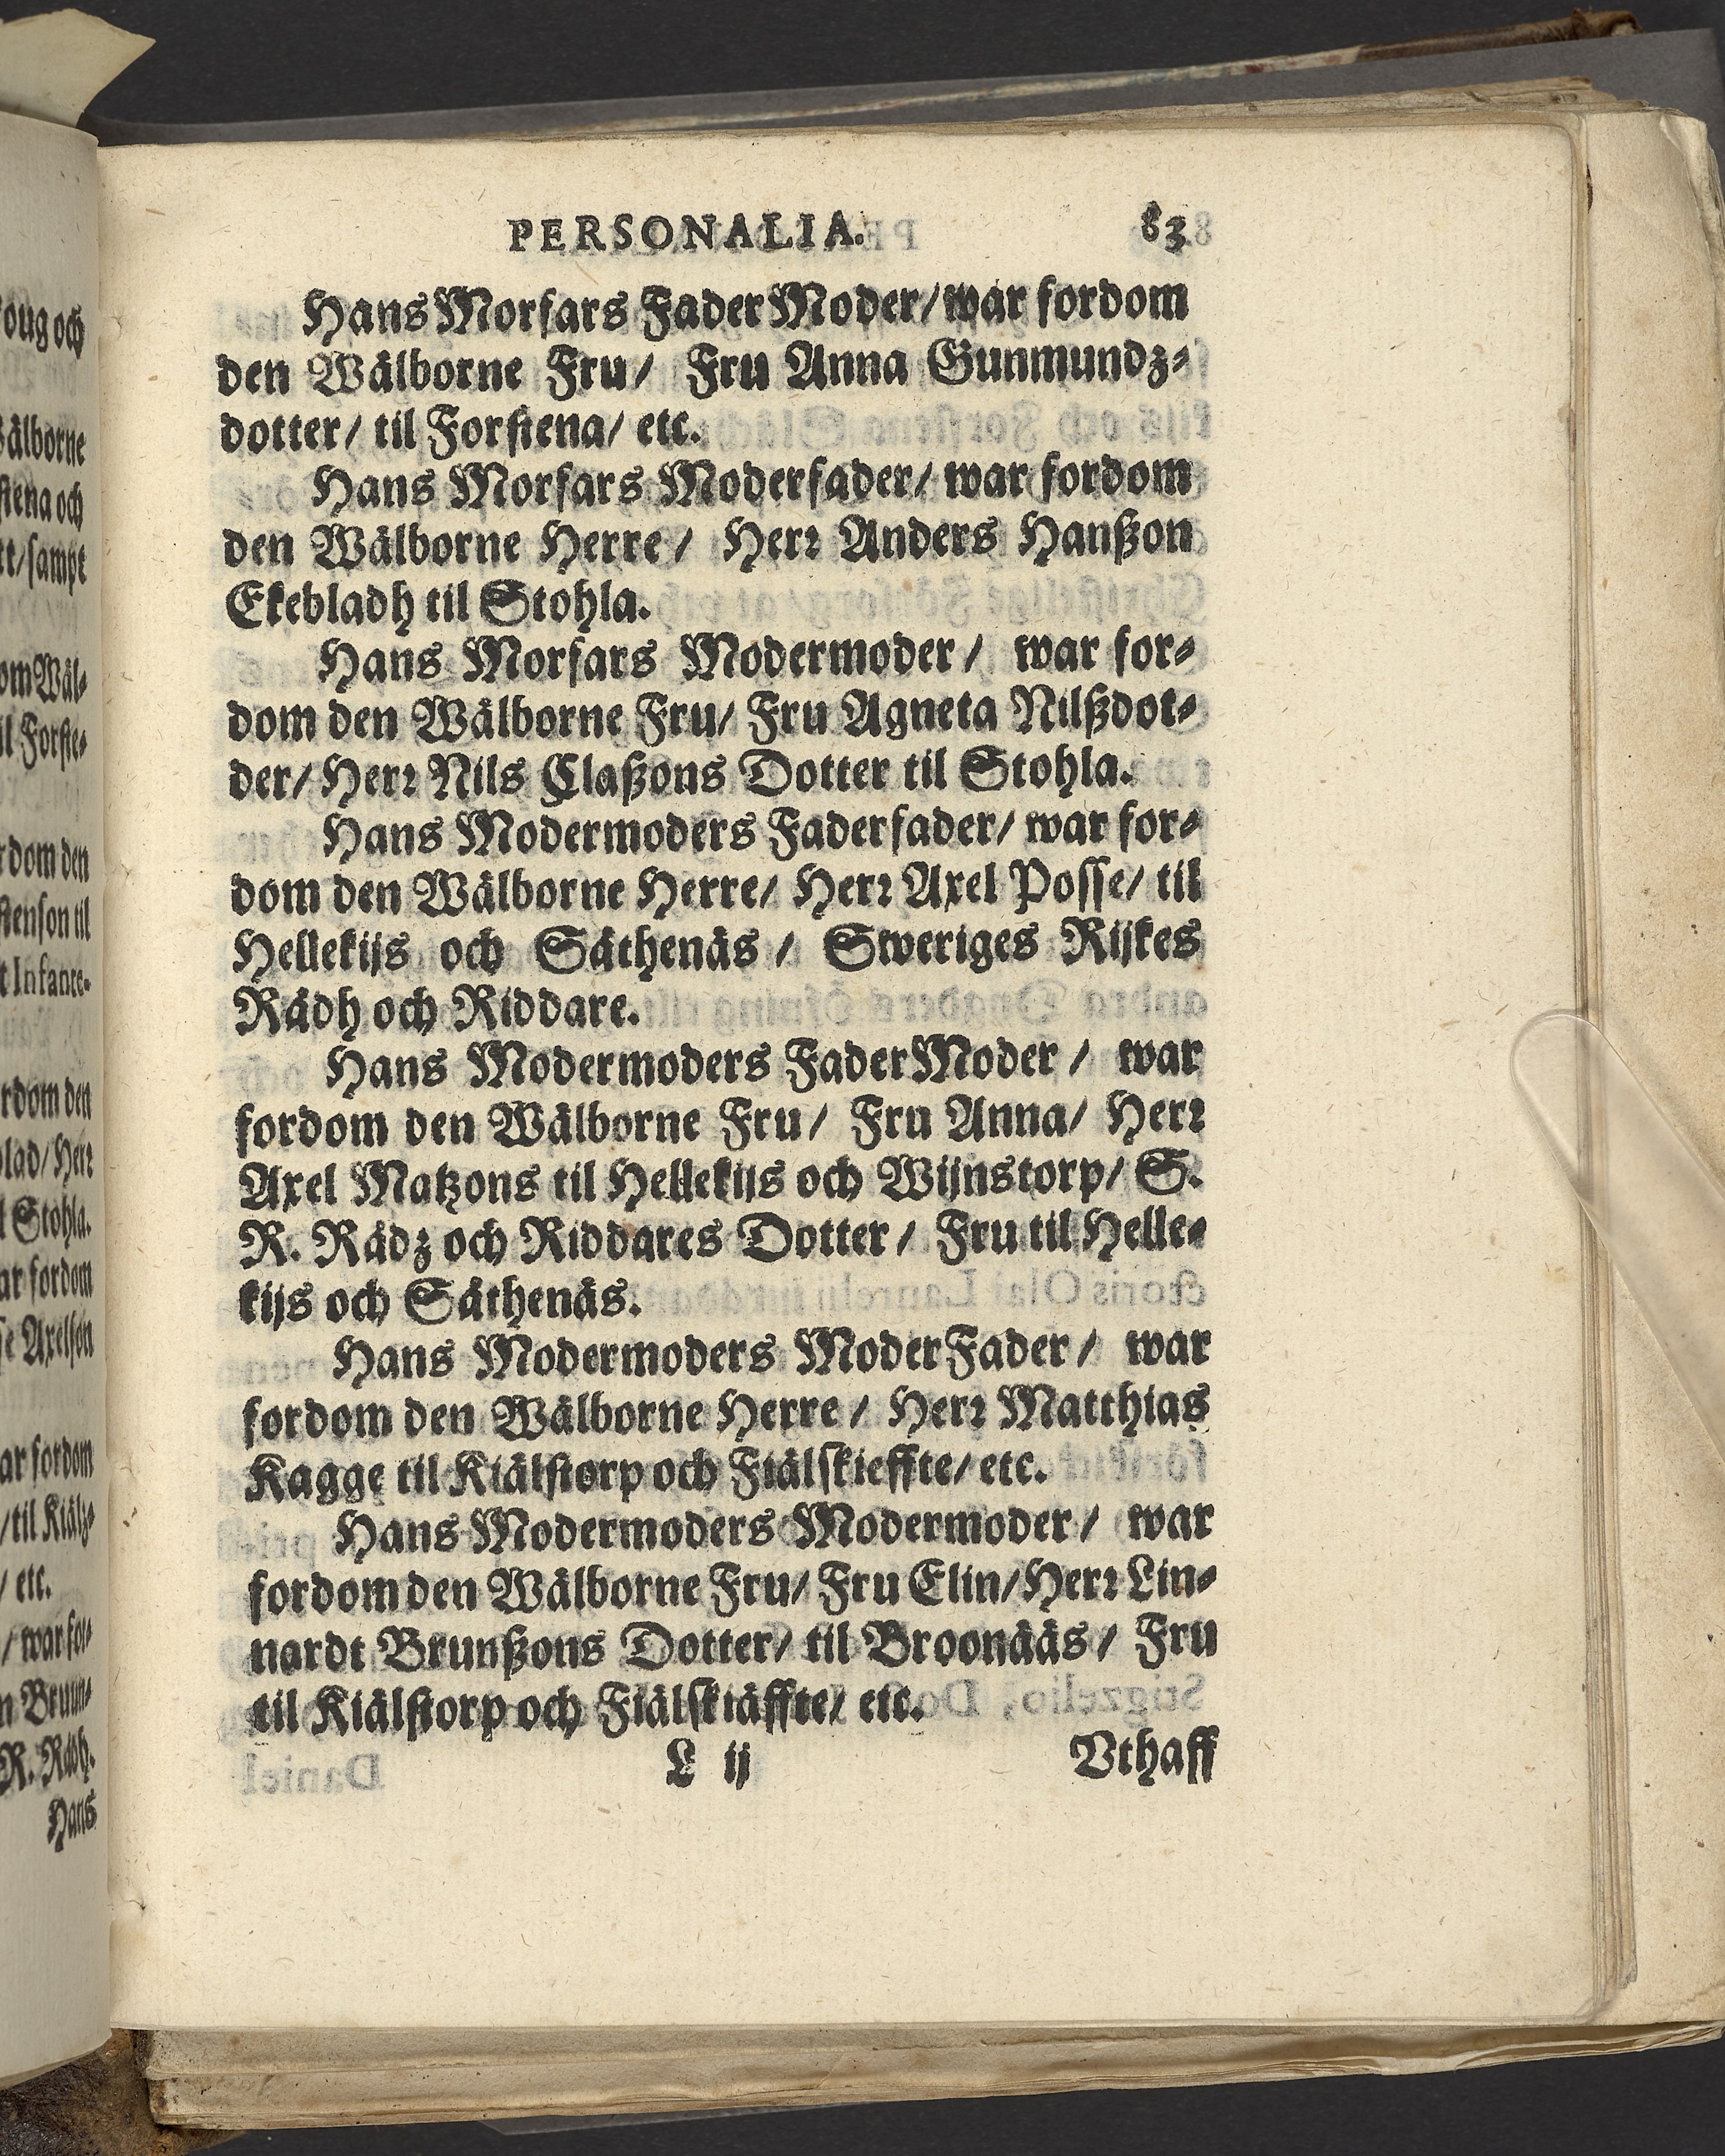 PERSONALIA. 83
Hans Morfars FaderModer/ war fordom
den Wälborne Fru/ Fru Anna Gunmundz-
dotter/ til Forstena/ etc.
Hans Morfars Moderfader/ war fordom
den Wälborne Herre/ Herr Anders Hanßon
Ekebladh til Stohla.
Hans Morfars Modermoder/ war for-
dom den Wälborne Fru/ Fru Agneta Nilßdot-
der/ Herr Nils Claßons Dotter til Stohla.
Hans Modermoders Faderfader/ war for-
dom den Wälborne Herre/ Herr Axel Posse/ til
Hellekijs och Säthenäs/ Sweriges Rijkes
Rådh och Riddare.
Hans Modermoders FaderModer/ war
fordom den Wälborne Fru/ Fru Anna/ Herr
Axel Matzons til Hellekijs och Wijnstorp/ S.
R. Rådz och Riddares Dotter/ Fru til Helle-
kijs och Säthenäs.
Hans Modermoders ModerFader/ war
fordom den Wälborne Herre/ Herr Matthias
Kagge til Kiälstorp och Fiälskieffte/ etc.
Hans Modermoders Modermoder/ war
fordom den Wälborne Fru/ Fru Elin/ Herr Lin-
nardt Brunßons Dotter/ til Broonääs/ Fru
til Kiälstorp och Fiälskiäffte/ etc.
L ij Vthaff